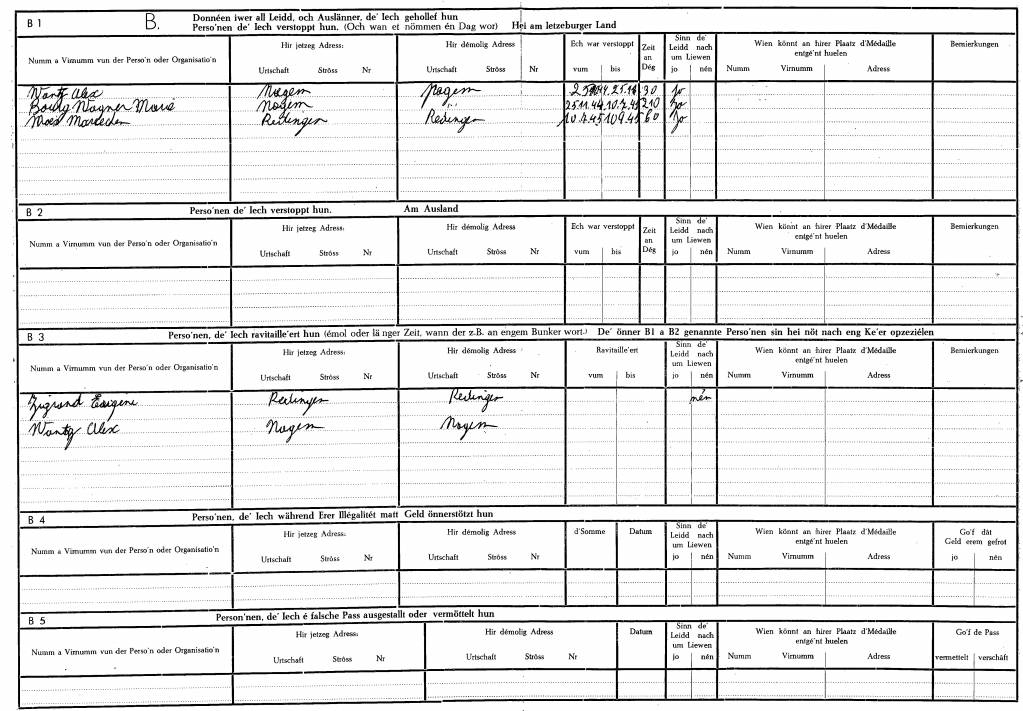 B 1 B. Donnéen iwer all Leidd, och Auslänner, de' Iech gehollef hun
Perso'nen de' Iech verstoppt hun. (Och wan et nömmen én Dag wor) Hei am letzeburger Land
Numm a Virnumm vun der Perso'n oder Organisatio'n Hir jetzeg Adress: Hir démolig Adress Ech war verstoppt Zeit an Dég Sinn de' Leidd nach um Liewen Wien könnt an hirer Plaatz d'Médaille entgé'nt huelen Bemierkungen
Urtschaft Ströss Nr Urtschaft Ströss Nr vum bis jo nén Numm Virnumm Adress
Wantz Alex Nagem Nagem 30 jo
Bourg Wagner Marie Nagem " 25.11.44 10.7.45 210 jo
Moes Reidinger Redinger 10.7.45 10.9.45 60 jo
B 2 Perso'nen de' Iech verstoppt hun. Am Ausland
Numm a Virnumm vun der Perso'n oder Organisatio'n Hir jetzeg Adress: Hir démolig Adress Ech war verstoppt Zeit an Dég Sinn de' Leidd nach um Liewen Wien könnt an hirer Plaatz d'Médaille entgé'nt huelen Bemierkungen
Urtschaft Ströss Nr Urtschaft Ströss Nr vum bis jo nén Numm Virnumm Adress
B 3 Perso'nen, de' Iech ravitaille'ert hun (émol oder lä nger Zeit, wann der z.B. an engem Bunker wort.) De' önner B1 a B2 genannte Perso'nen sin hei nöt nach eng Ke'er opzeziélen
Numm a Virnumm vun der Perso'n oder Organisatio'n Hir jetzeg Adress: Hir démolig Adress Ravitaille'ert Sinn de' Leidd nach um Liewen Wien könnt an hirer Plaatz d'Médaille entgé'nt huelen Bemierkungen
Urtschaft Ströss Nr Urtschaft Ströss Nr vum bis jo nén Numm Virnumm Adress
Zigrand Eugene Redinger Redinger nén
Wantz Alex Nagem Nagem
B 4 Perso'nen, de' Iech während Erer Illégalitét matt Geld önnerstötzt hun
Numm a Virnumm vun der Perso'n oder Organisatio'n Hir jetzeg Adress: Hir démolig Adress d'Somme Datum Sinn de' Leidd nach um Liewen Wien könnt an hirer Plaatz d'Médaille entgé'nt huelen Go'f dât Geld erem gefrot
Urtschaft Ströss Nr Urtschaft Ströss Nr jo nén Numm Virnumm Adress jo nén
B 5 Person'nen, de' Iech é falsche Pass ausgestallt oder vermöttelt hun
Numm a Virnumm vun der Perso'n oder Organisatio'n Hir jetzeg Adress: Hir démolig Adress Datum Sinn de' Leidd nach um Liewen Wien könnt an hirer Plaatz d'Médaille entgé'nt huelen Go'f de Pass
Urtschaft Ströss Nr Urtschaft Ströss Nr jo nén Numm Virnumm Adress vermettelt verschäft